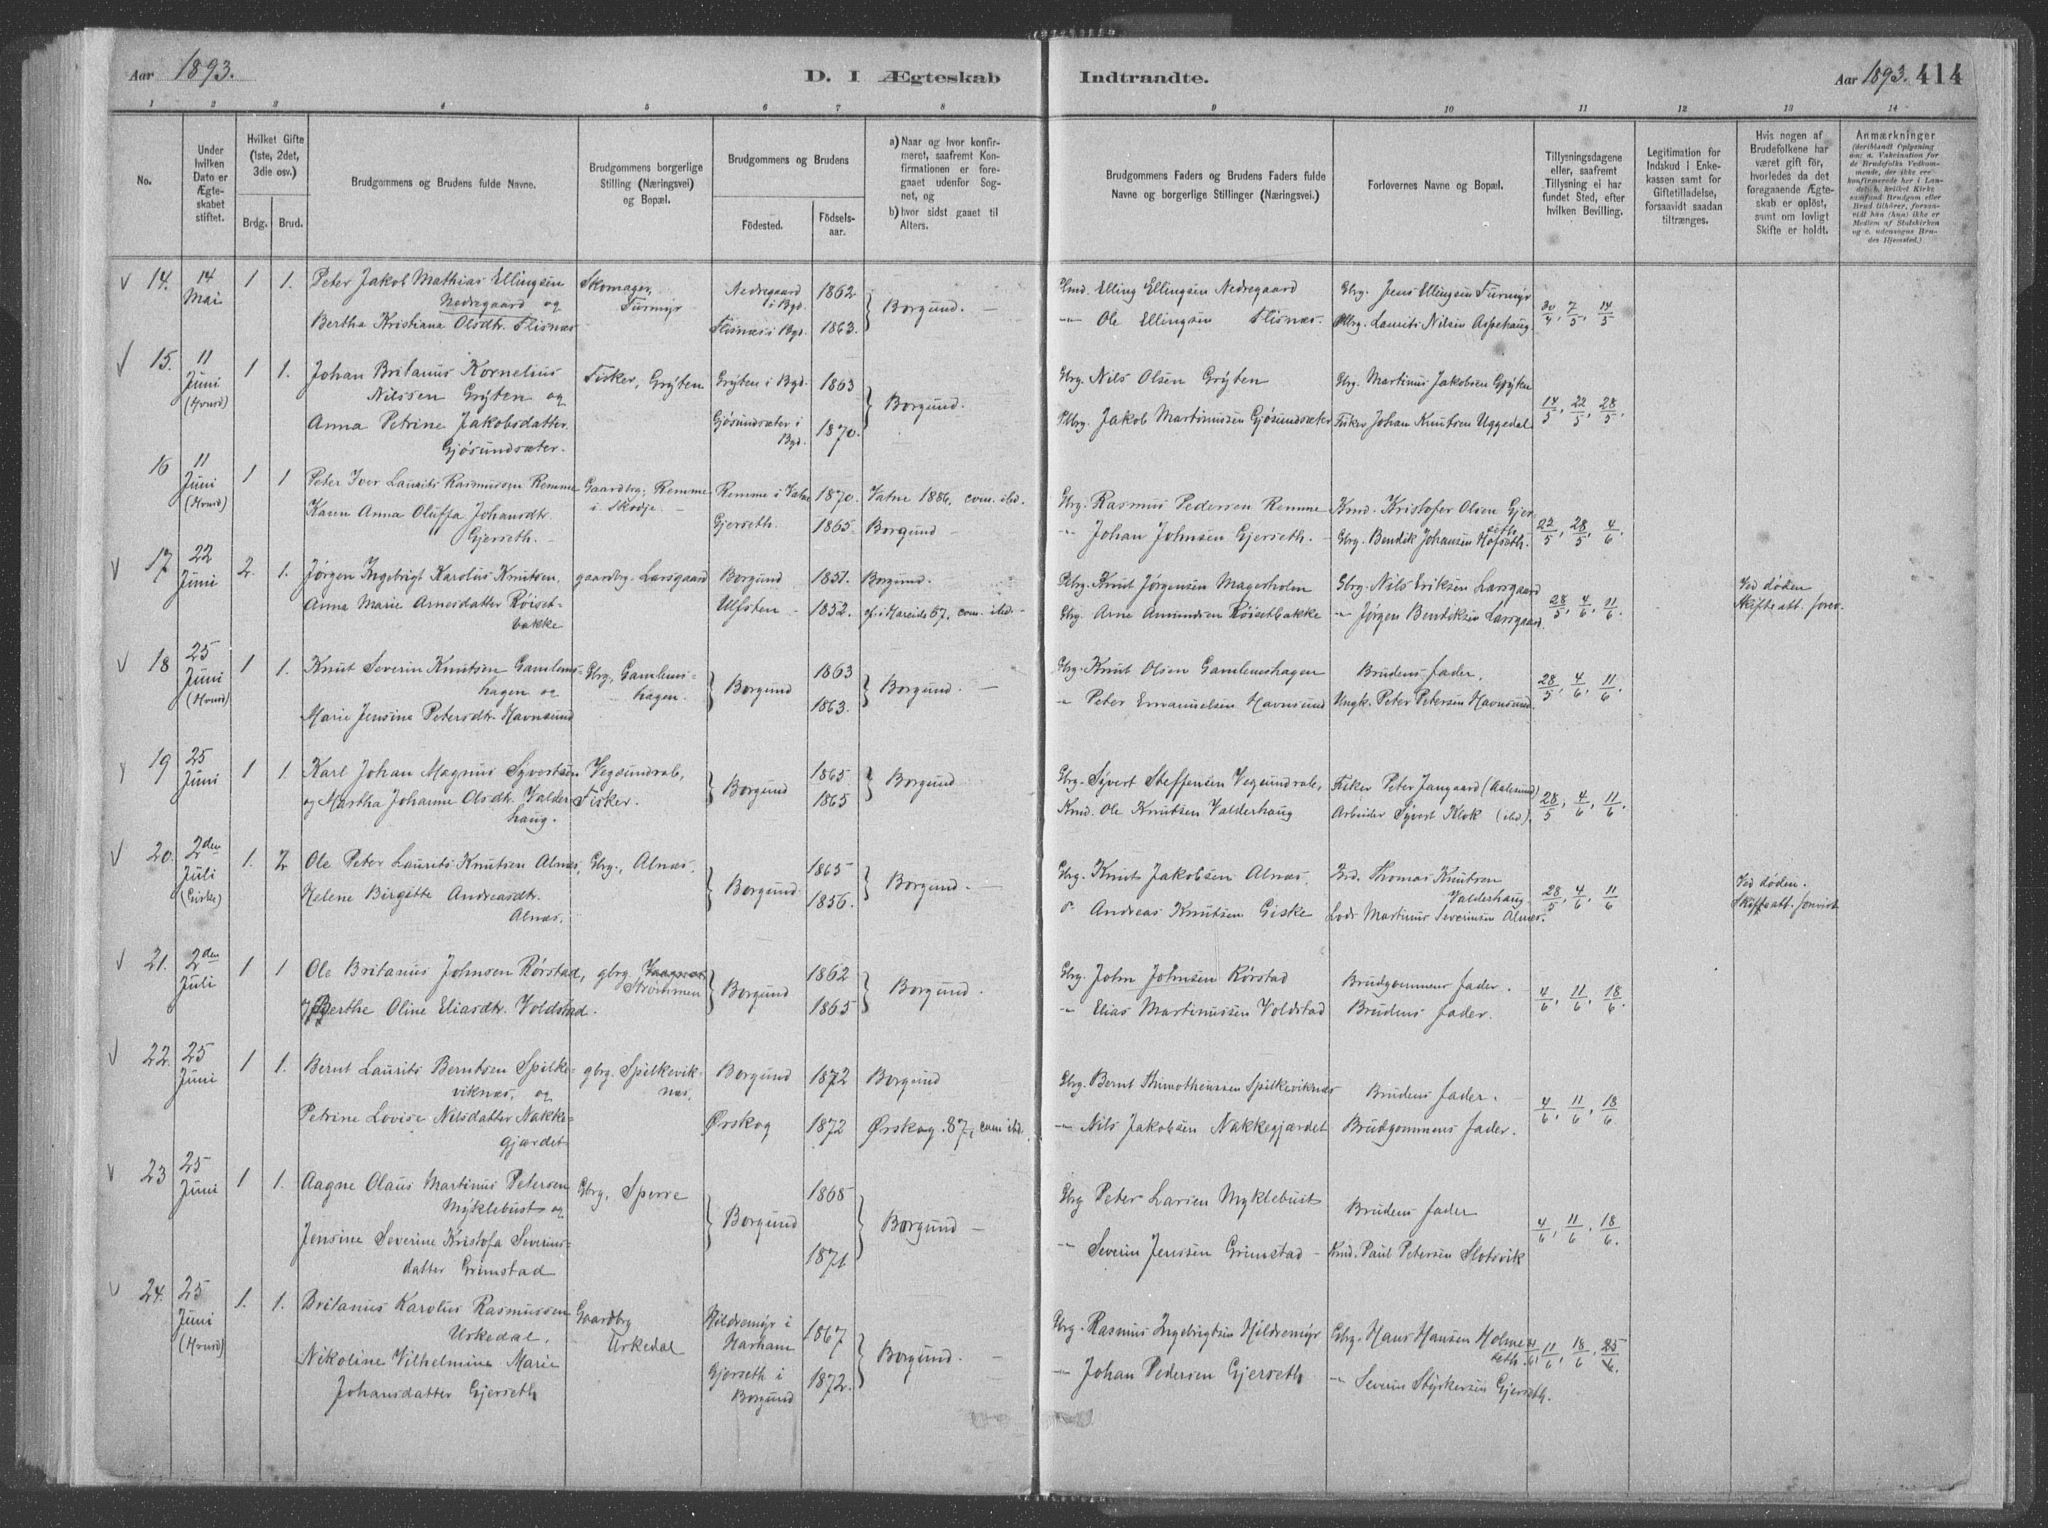 Aar 1893. D. I Ægteskab Indtrandte. Aar 1893. 414
1 2 3 4 5 6 7 8 9 10 11 12 13 14
No.
Under hvilken Dato er Ægteskabet stiftet.
Hvilket Gifte (1ste, 2det, 3die osv.)
Brdg. Brud.
Brudgommens og Brudens fulde Navne.
Brudgommens borgerlige Stilling (Næringsvei) og Bopæl.
Brudgommens og Brudens
Fødested. Fødselsaar.
a) Naar og hvor konfirmeret, saafremt Konfirmationen er foregaaet udenfor Sognet, og
b) hvor sidst gaaet til Alters.
Brudgommens Faders og Brudens Faders fulde Navne og borgerlige Stillinger (Næringsvei.)
Forlovernes Navne og Bopæl.
Tillysningsdagene eller, saafremt Tillysning ei har fundet Sted, efter hvilken Bevilling.
Legitimation for Indskud i Enkekassen samt for Giftetilladelse, forsaavidt saadan tiltrænges.
Hvis nogen af Brudefolkene har været gift før, hvorledes da det foregaaende Ægteskab er opløst, samt om lovligt Skifte er holdt.
Anmærkninger (deriblandt Oplysning om: a. Vakcination for de Brudefolks Vedkommende, der ikke ere konfirmerede her i Landet, b. hvilket Kirkesamfund Brudgom eller Brud tilhører, forsaavidt han (hun) ikke er Medlem af Statskirken og c. udensogns Brudes Hjemsted.)
14. 14 Mai 1 1. Peter Jakob Mathias Ellingsen Nedregaard og Skomager, Furmyr Nedregaard i Bgd. 1862 Borgund. — Hmd. Elling Ellingsen Nedregaard Gbrg. Jens Ellingsen Furmyr 30/4, 7/5, 14/5
Bertha Kristiana Olsdtr. Flisnæs Flisnæs i Bgd. 1863. " Ole Ellingsen Flisnæs. Plbrg. Laurits Nilsen Aspehaug
15. 11 Juni (Hovrd) 1 1. Johan Britanus Kornelius Nilssen Grÿten og Fisker, Grÿten Grÿten i Bgd. 1863 Borgund. Gbrg. Nils Olsen Grÿten Gbrg. Martinus Jakobsen Grÿten 14/5, 22/5, 28/5.
Anna Petrine Jakobsdatter Gjøsundsæter. Gjøsundsæter i Bgd. 1870. Plbrg. Jakob Martinussen Gjøsundsæter Fisker Johan Knutsen Uggedal
16 11 Juni (Hovrd) 1 1 Peter Iver Laurits Rasmussen Remme Gaardbg. Remme i Skodje. — Remme i Vatne 1870. Vatne 1886. com. ibd. Gbrg. Rasmus Pedersen Remme Kmd. Kristofer Olsen Gjersette 22/5, 28/5, 4/6.
Karen Anna Oluffa Johansdtr. Gjerseth. Gjerseth. 1865 Borgund — " Johan Johnsen Gjerseth. Gbrg. Bendik Johansen Hofseth.
17. 22 Juni 2. 1. Jørgen Ingebrigt Karolus Knutsen, gaardbrg. Larsgaard Borgund 1851. Borgund. Plbrg. Knut Jørgensen Magerholm Gbrg. Nils Eriksen Larsgaard 28/5, 4/6, 11/6. Ved døden Skifteatt. forev.
Anna Marie Arnesdatter Røisetbakke Ulfsten — 1852. cf. i Hareide 67, com. ibd — Gbrg. Arne Amundsen Røisetbakke " Jørgen Bendiksen Larsgaard.
18 25 Juni (Hovrd) 1 1. Knut Severin Knutsen Gamlemshagen og Gbrg, Gamlemshagen. Borgund 1863 Borgund. — Gbrg. Knut Olsen Gamlemshagen Brudens fader. 28/5, 4/6, 11/6.
Marie Jensine Petersdtr. Havnsund 1863. " Peter Emanuelsen Havnsund Ungk. Peter Petersen Havnsund.
19 25 Juni 1 1. Karl Johan Magnus Syvertsen Vegsundrab, Fisker. Borgund 1865 Borgund Gbrg. Sÿvert Steffensen Vegsundrab, Fisker Peter Jangaard (Aalesund) 28/5, 4/6, 11/6.
og Martha Johanne Olsdtr. Valderhaug. 1865 Kmd. Ole Knutsen Valderhaug Arbeider Sÿvert Klok (ibd).
20. 2den Juli (Giske) 1. 2 Ole Peter Laurits Knutsen Alnæs, Gbrg., Alnæs. Borgund 1865 Borgund — Gbrg. Knut Jakobsen Alnæs. Thomas Knutsen Valderhaug 28/5, 4/6, 11/6 Ved døden. Skifteatt. forevist
Helene Birgitte Andreasdtr. Alnæs. 1856. " Andreas Knutsen Giske Lods Martinus Severinsen Alnæs.
21. 2den Juli 1 1 Ole Britanus Johnsen Rørstad, gbrg. Strømmen Borgund 1862 Borgund. Gbrg. John Johnsen Rørstad Brudgommens fader. 4/6, 11/6, 18/6.
Berthe Oline Eliasdtr. Voldstad. 1865 " Elias Martinussen Voldstad Brudens fader.
22. 25 Juni 1 1. Bernt Laurits Berntsen Spilkeviknæs, og gbrg. Spilkeviknæs, Borgund 1872 Borgund Gbrg. Bernt Thimotheussen Spilkeviknæs Brudens fader. 4/6, 11/6, 18/6
Petrine Lovise Nilsdatter Nakkegjærdet Ørskog 1872 Ørskog. 87, com ibd. " Nils Jakobsen Nakkegjærdet Brudgommens fader.
23 25 Juni 1 1. Aagne Olaus Martinus Petersen Mÿklebust og Gbrg, Sperre Borgund 1868 Borgund — Gbrg Peter Larsen Myklebust Brudens fader 4/6, 11/6, 18/6.
Jensine Severine Kristofa Severinsdatter Grimstad 1871 " Severin Jenssen Grimstad — Kmd. Paul Petersen Slotsvik
24. 25 Juni (Hovrd) 1. 1. Britanus Karolus Rasmussen Urkedal. Gaardbg Urkedal Hildremyr i Harham 1867 Borgund. — Gbrg. Rasmus Ingebrigtsen Hildremÿr Gbrg. Hans Hansen Holmeseth. 4/6, 11/6, 18/6, 25/6.
Nikoline Vilhelmine Marie Johansdatter Gjerseth Gjerseth i Borgund 1872. " Johan Pedersen Gjerseth " Severin Stÿrkersen Gjerseth.